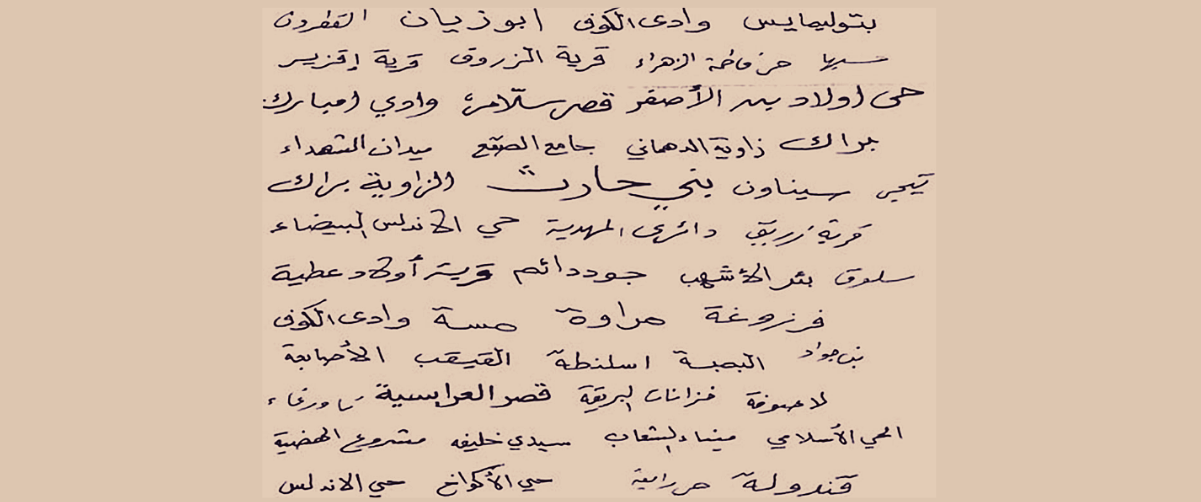 بتوليمايس وادى الكوف ابو زيان القطرون
سبها حي فاطمة الزهراء قرية الزروق قرية إقزير
حى اولاد بن الأصفر قصر سلامة وادي امبارك
براك زاوية الدهماني جامع الصقع ميدان الشهداء
تيجي سيناون بني حارث الزاوية براك
قرية زريق دائرى المهدية حي الاندلس البيضاء
سلوق بئر الأشهب جود دائم قرية أولاد عطية
فرزوغة مراوة مسة وادى الكوف
بن جواد البمبة اسلنطة القيقب الأصابعة
خزانات البريقة قصر العرابسية
الحي الأسلامي ميناء الشعاب سيدي خليفه مشروع الهضبة
قندولة حي الأكواخ حي الاندلس